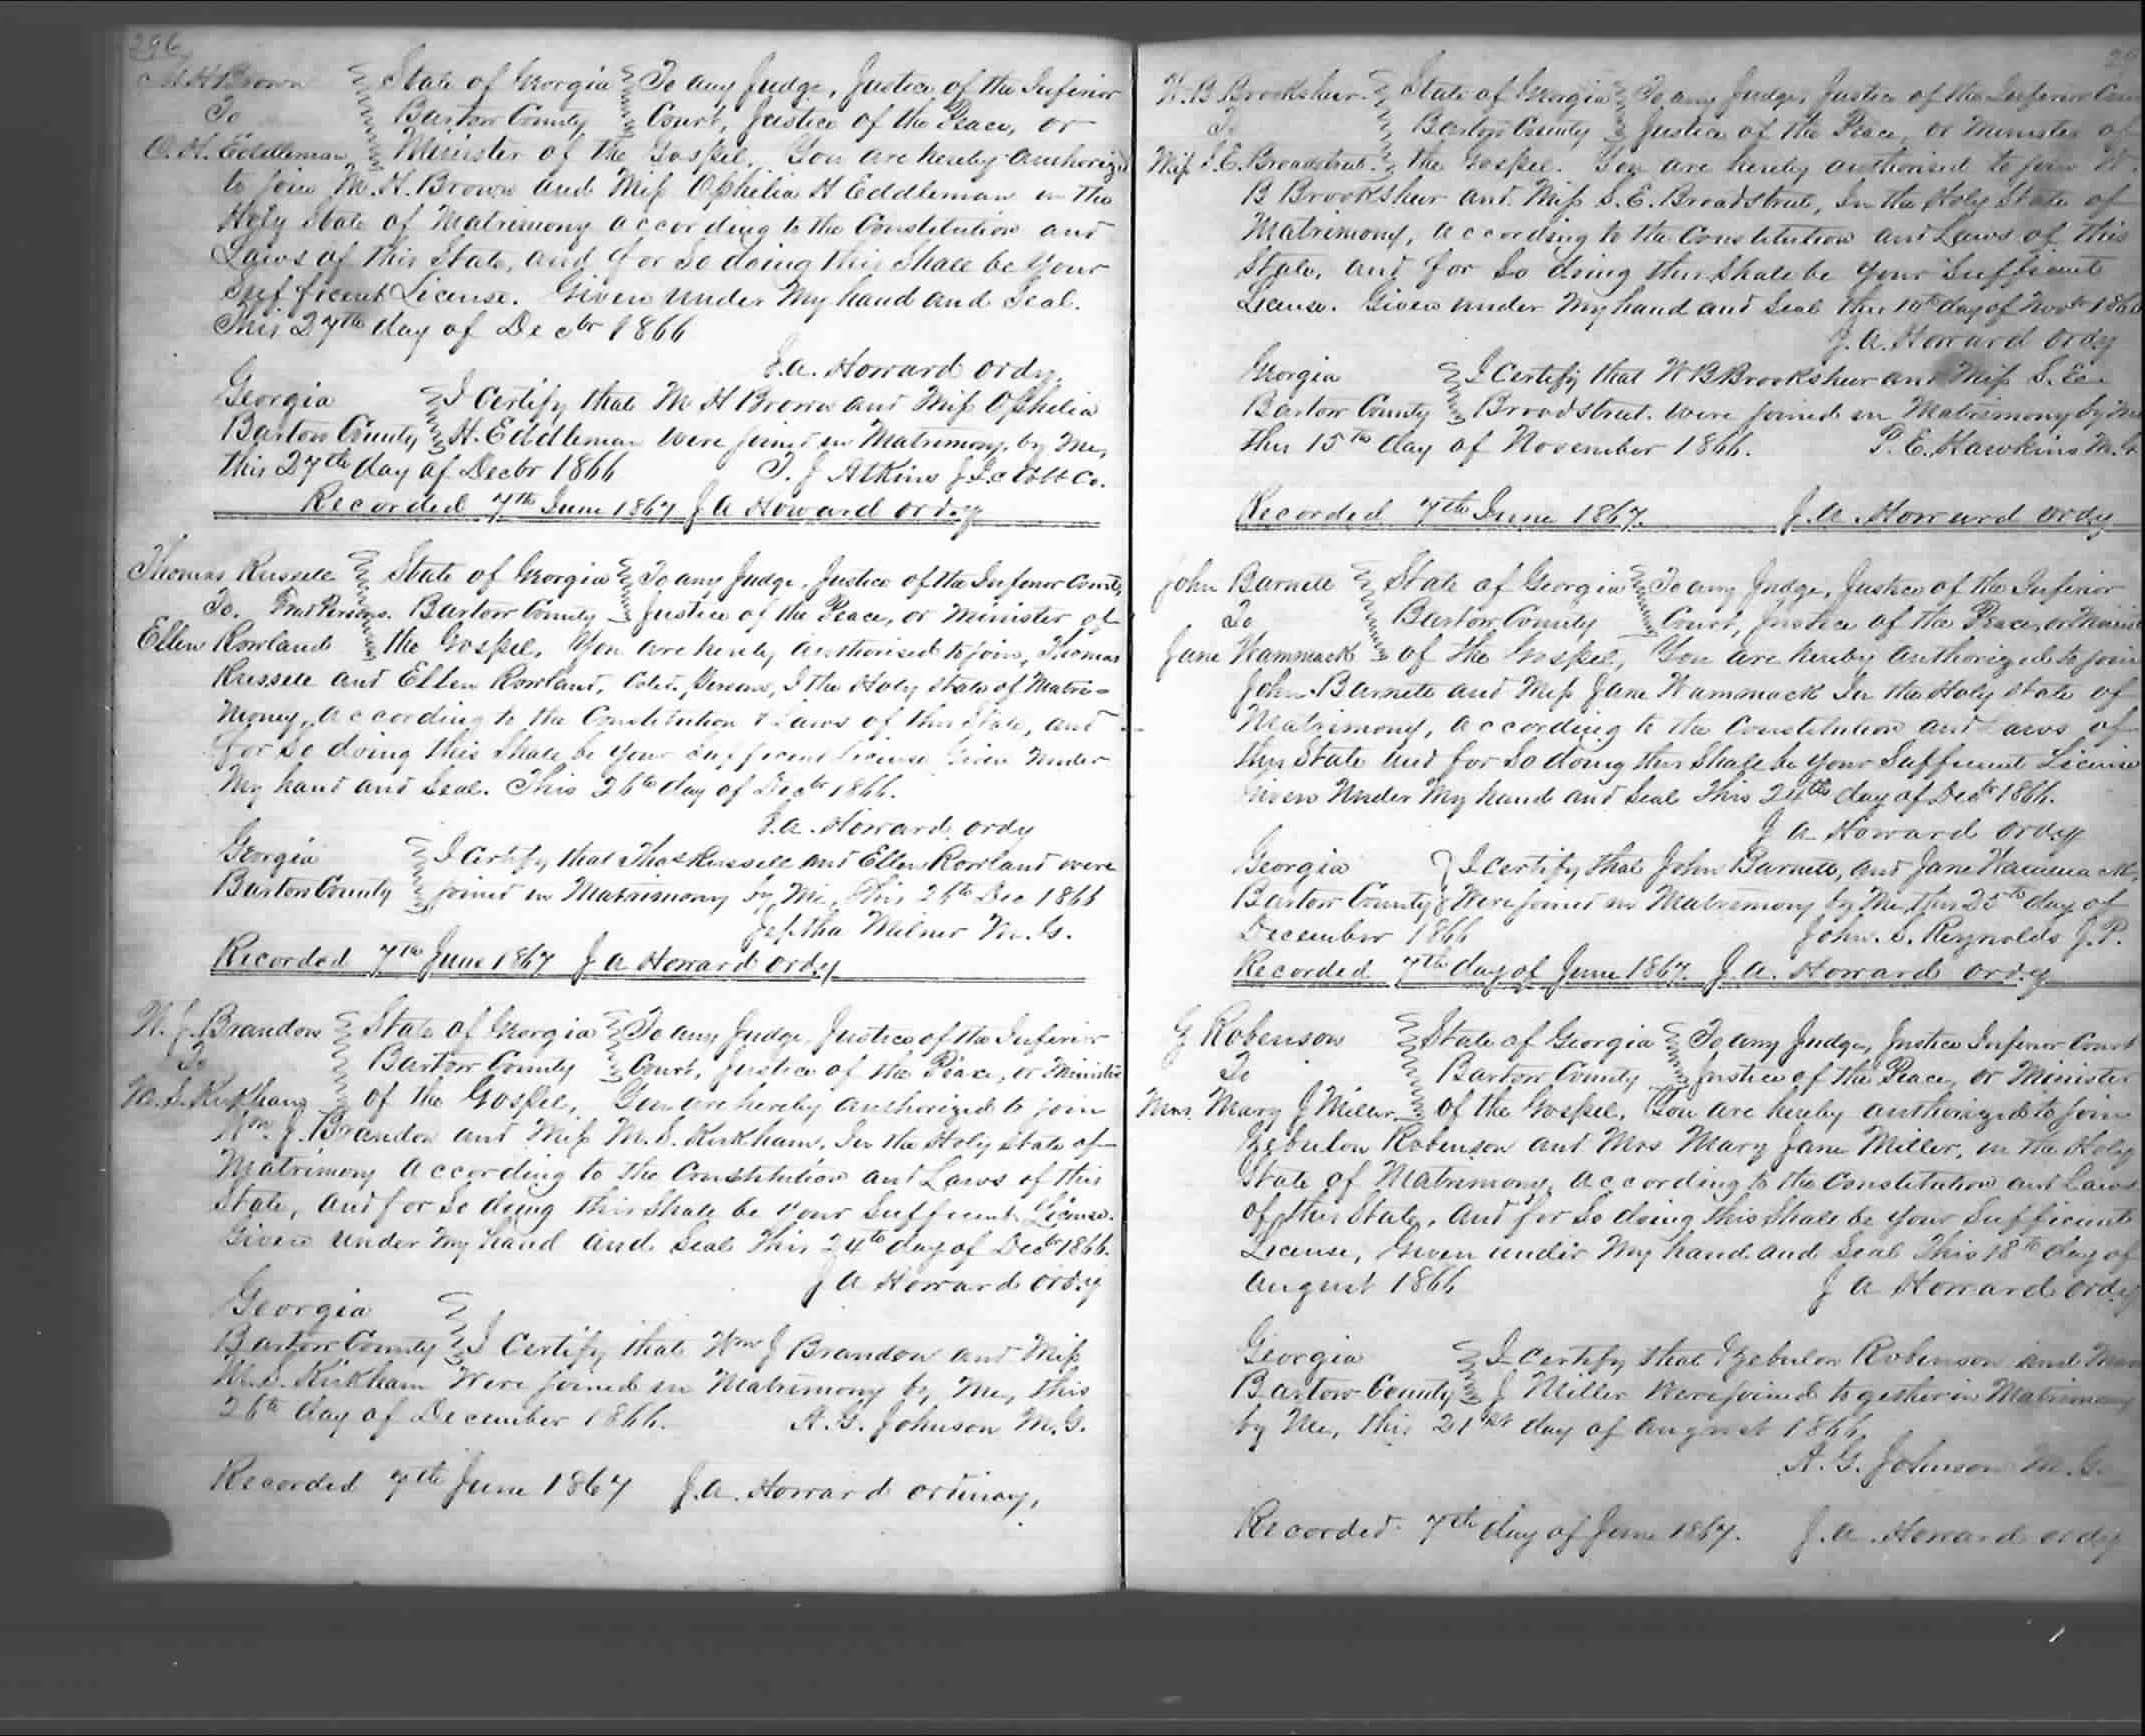 296
M. H Brown State of Georgia To any Judge, Justice of the Inferior
To Bartow County Court, Justice of the Peace, or
O. H. Eddleman Minister of the Gospel. You are hereby authorized
to join M. H. Brown and Miss Ophilia H Eddleman in the
Holy State of Matrimony according to the Constitution and
Laws of this State, and for So doing this Shall be your
Sufficent License. Given under My hand and Seal.
This 27th day of Decbr 1866
J. a. Howard ordy
Georgia I Certify that M H Brown and Miss Ophilia
Bartow County H. Eddleman were joined in Matrimony, by Me,
this 27th day of Decbr 1866 T. J Atkins J. I. C Cobb Co.
Recorded 7th June 1867 J a Howard ordy
Thomas Russell State of Georgia To any Judge, Justice of the Inferior Court,
To. Bartow County Justice of the Peace, or Minister of
Ellen Rowland the Gospel, You are hereby authorised to join, Thomas
Russell and Ellen Rowland, Cold. Persons, I the Holy state of Matri-
mony, according to the Constitution & Laws of this State, and
for So doing this Shall be your sufficient License Given Under
My hand and Seal. This 26th day of Decbr 1866.
J. a. Howard ordy
Georgia I Certify that Thos Russell and Ellen Rowland were
Bartow County joined in Matrimony by Me, This 26th Dec 1866
Jeptha Milner M. G.
Recorded 7th June 1867 J a Howard ordy
W. J. Brandon State of Georgia To any Judge, Justice of the Inferior
To Bartow County Court, Justice of the Peace, or Minister
M. S. Kirkham of the Gospel, You are hereby authorized to join
Wm. J. Brandon and Miss M. S. Kirkham, In the Holy State of
Matrimony according to the Constitution and Laws of this
State, and for So doing this Shall be your Sufficient License.
Given under my hand and Seal This 24th day of Decbr 1866.
J a Howard ordy
Georgia
Bartow County I Certify that Wm J Brandon and Miss
M. S. Kirkham Were joined in Matrimony by Me, this
26th day of December 1866. A. G. Johnson M. G.
Recorded 7th June 1867 J. a. Howard ordinary,
W. B Brooksheer. State of Georgia To any Judge, Justice of the Inferior Court
To Bartow County Justice of the Peace, or Minister of
Miss S. E. Broadstreet. the Gospel. You are hereby authorised to join W.
B Brooksheer and Miss S. E. Broadstreet, In the Holy State of
Matrimony, according to the Constitution and Laws of this
State, and for So doing this Shall be your Sufficient
License. Given under My hand and Seal this 10th day of Novbr 1866
J. a. Howard ordy
Georgia I Certify that W B Brooksheer and Miss S. E.
Bartow County Broadstreet. were joined in Matrimony by Me
this 15th day of November 1866. P. E. Hawkins M. G
Recorded 7th June 1867. J. a. Howard ordy
John Barnett State of Georgia To any Judge, Justice of the Inferior
To Bartow County Court, Justice of the Peace, or Minist
Jane Hammack of the Gospel, You are hereby authorized to join
John. Barnett and Miss Jane Hammack In the Holy State of
Matrimony, according to the Constitution and Laws of
this State and for So doing this Shall be your Sufficient License
Given Under My hand and Seal This 24th day of Decbr 1866.
J a Howard ordy
Georgia I certify that John Barnett, and Jane Hammack,
Bartow County Were joined in Matrimony by Me this 25th day of
December 1866 John. S. Reynolds J. P.
Recorded 7th day of June 1867. J. a. Howard ordy
G Robenson State of Georgia To any Judge, Justice Inferior Court
To Bartow County Justice of the Peace, or Minister
Mrs. Mary J Miller of the Gospel. You are hereby authorized to join
Zebulon Robenson and Mrs Mary Jane Miller, in the Holy
State of Matrimony, according to the Constitution and Laws
of this State, and for So doing this Shall be your Sufficient
License, Given under My hand and Seal This 18th day of
August 1866 J a Howard ordy
Georgia I Certify that Zebulon Robenson and Mary
Bartow County J Miller were joined together in Matrimony
by Me, this 21st day of August 1866,
A. G. Johnson M. G.
Recorded. 7th day of June 1867. J. a. Howard ordy